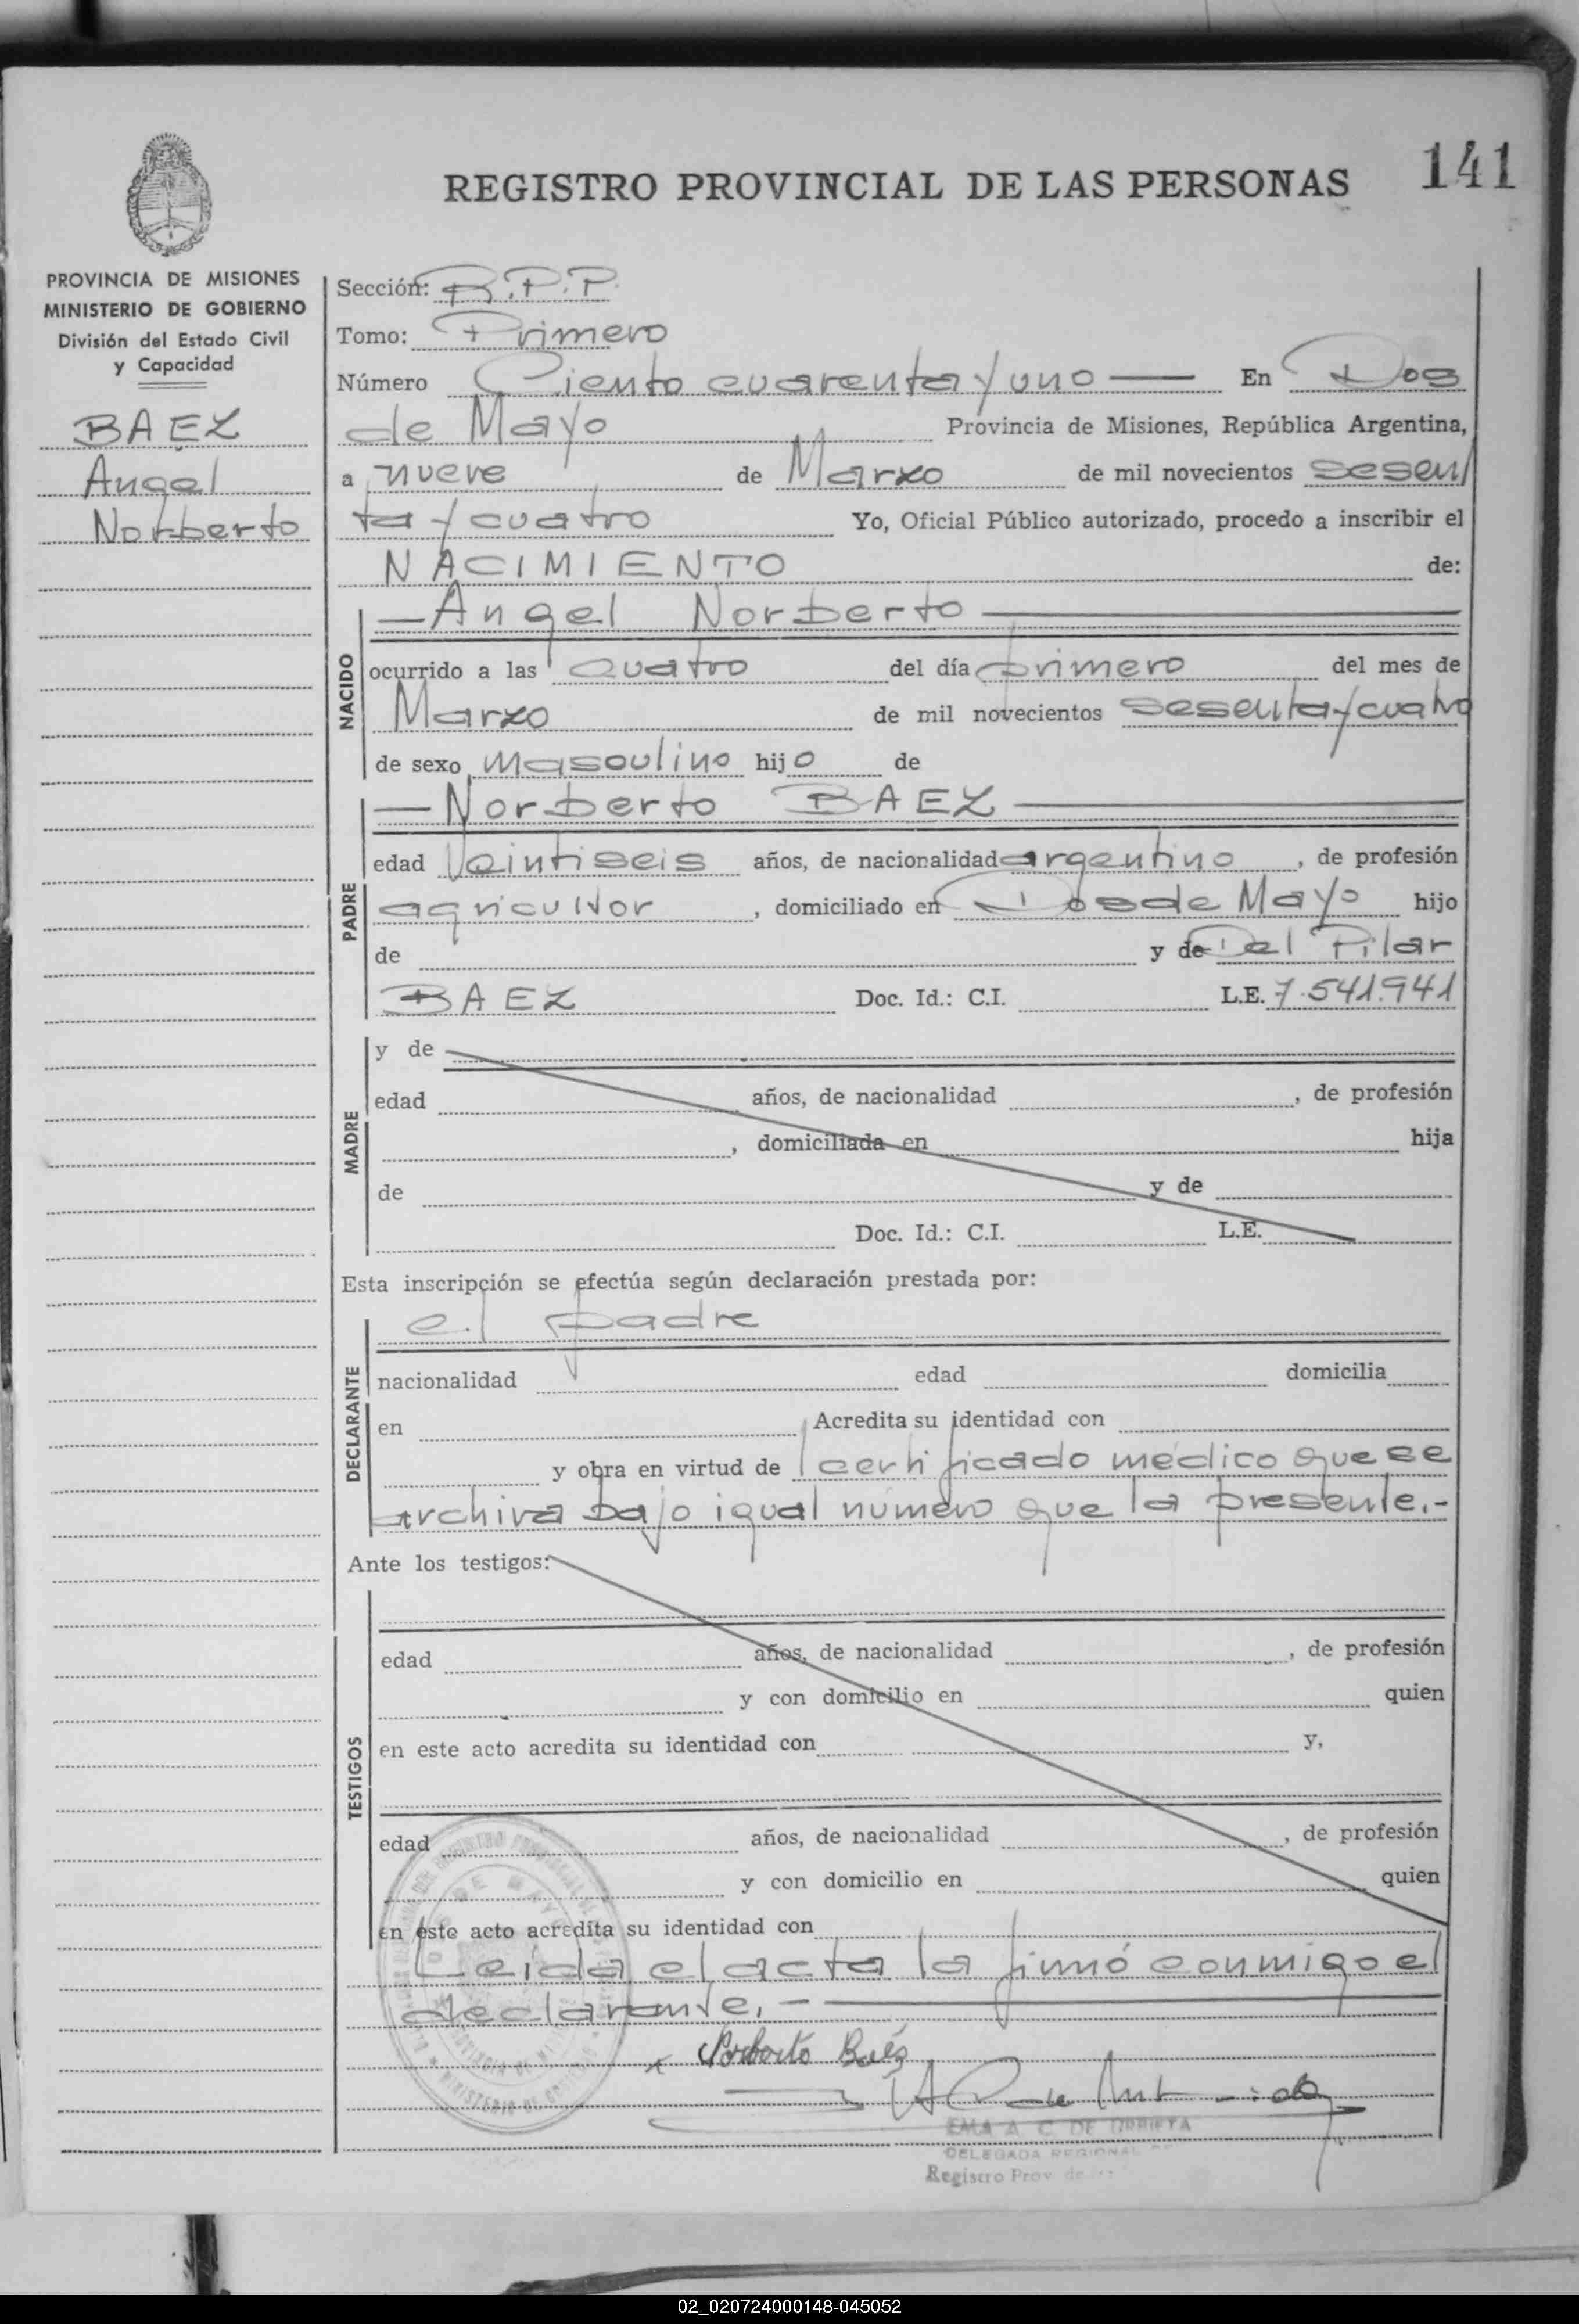 REGISTRO PROVINCIAL DE LAS PERSONAS 141
PROVINCIA DE MISIONES
MINISTERIO DE GOBIERNO
División del Estado Civil
y Capacidad
BAEZ
Angel
Norberto
Sección: R.P.P.
Tomo: Primero
Número Ciento cuarenta y uno — En Dos
de Mayo Provincia de Misiones, República Argentina,
a nueve de Marzo de mil novecientos sesen/
ta y cuatro Yo, Oficial Público autorizado, procedo a inscribir el
NACIMIENTO de:
NACIDO
— Angel Norberto —
ocurrido a las cuatro del día primero del mes de
Marzo de mil novecientos sesenta y cuatro
de sexo masculino hijo de
PADRE
— Norberto BAEZ —
edad Veintiseis años, de nacionalidad argentino, de profesión
agricultor, domiciliado en Dos de Mayo hijo
de y de Del Pilar
BAEZ Doc. Id.: C.I. L.E. 7.541.941
MADRE
y de
edad años, de nacionalidad , de profesión
, domiciliada en hija
de y de
Doc. Id.: C.I. L.E.
Esta inscripción se efectúa según declaración prestada por:
DECLARANTE
el padre
nacionalidad edad domicilia
en Acredita su identidad con
y obra en virtud de certificado médico que se
archiva bajo igual número que la presente.-
Ante los testigos:
TESTIGOS
edad años, de nacionalidad , de profesión
y con domicilio en quien
en este acto acredita su identidad con y,
edad años, de nacionalidad , de profesión
y con domicilio en quien
en este acto acredita su identidad con
Leida el acta la firmó conmigo el
declarante.-
x Norberto Baéz
EMA A. C. DE URRIETA
DELEGADA REGIONAL
Registro Prov. de
02_020724000148-045052